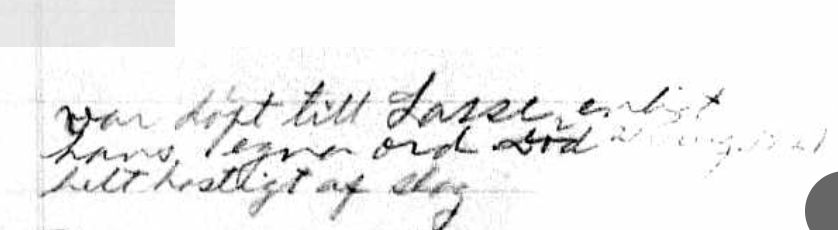 var döpt till Lasse, enligt
hans egna ord Död
helt hastigt af slag